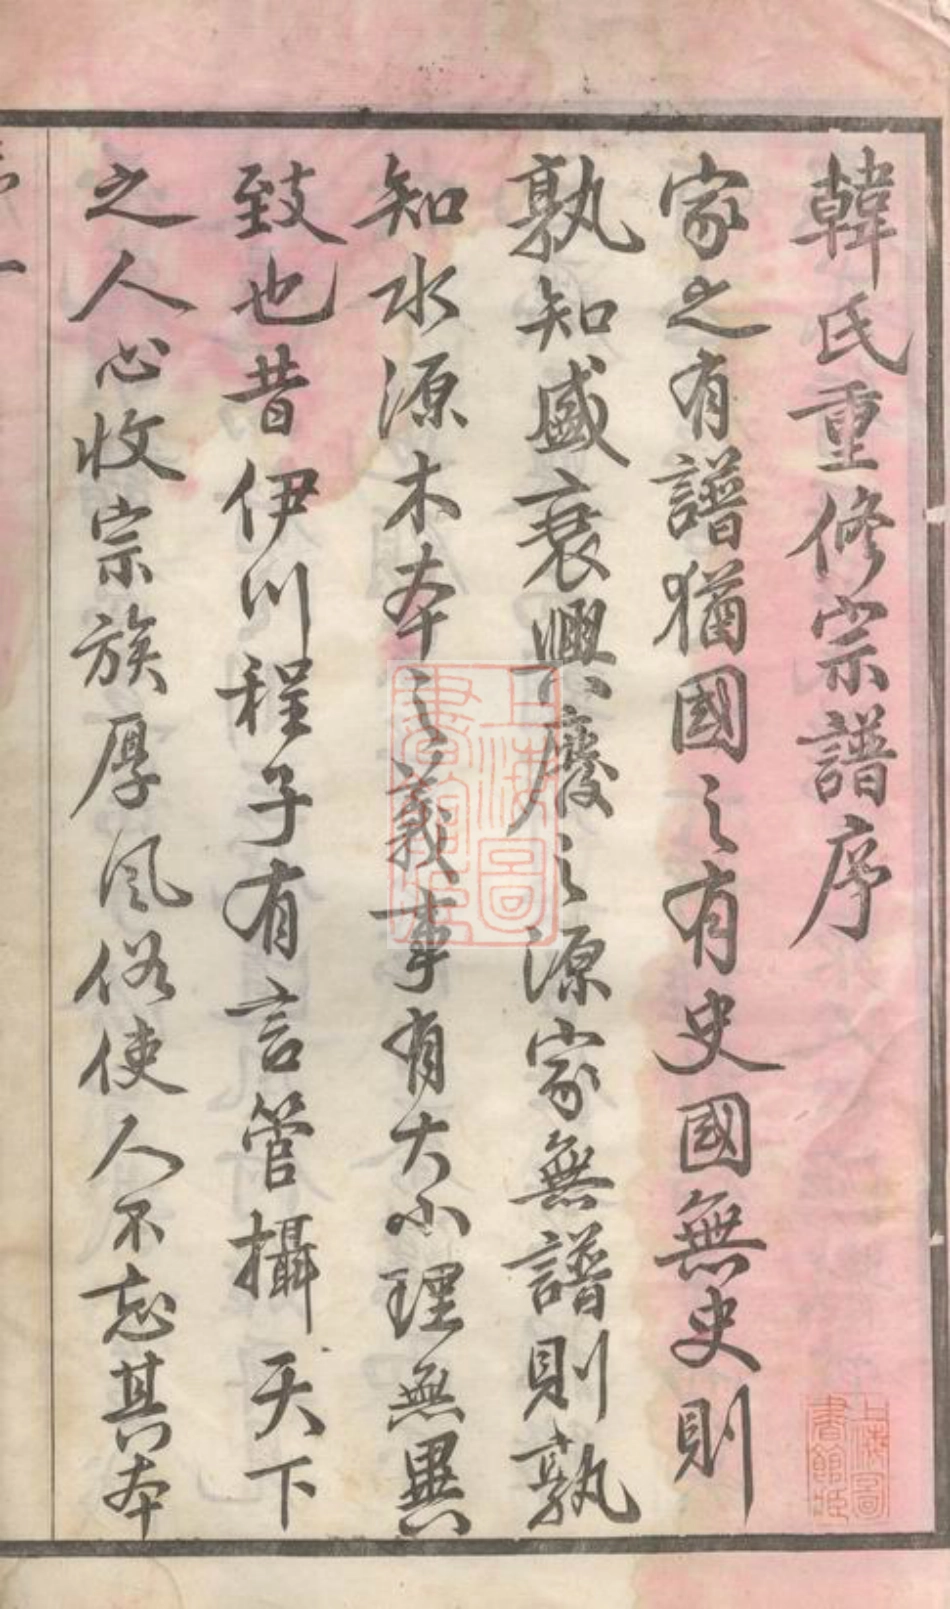 韓氏重修宗譜序
家之有譜猶國之有史國無史則
孰知盛衰興廢之源家無譜則孰
知水源木本之義事有大小理無異
致也昔伊川程子有言管攝天下
之人心收宗族厚風俗使人不忘其本
上海圖書館藏